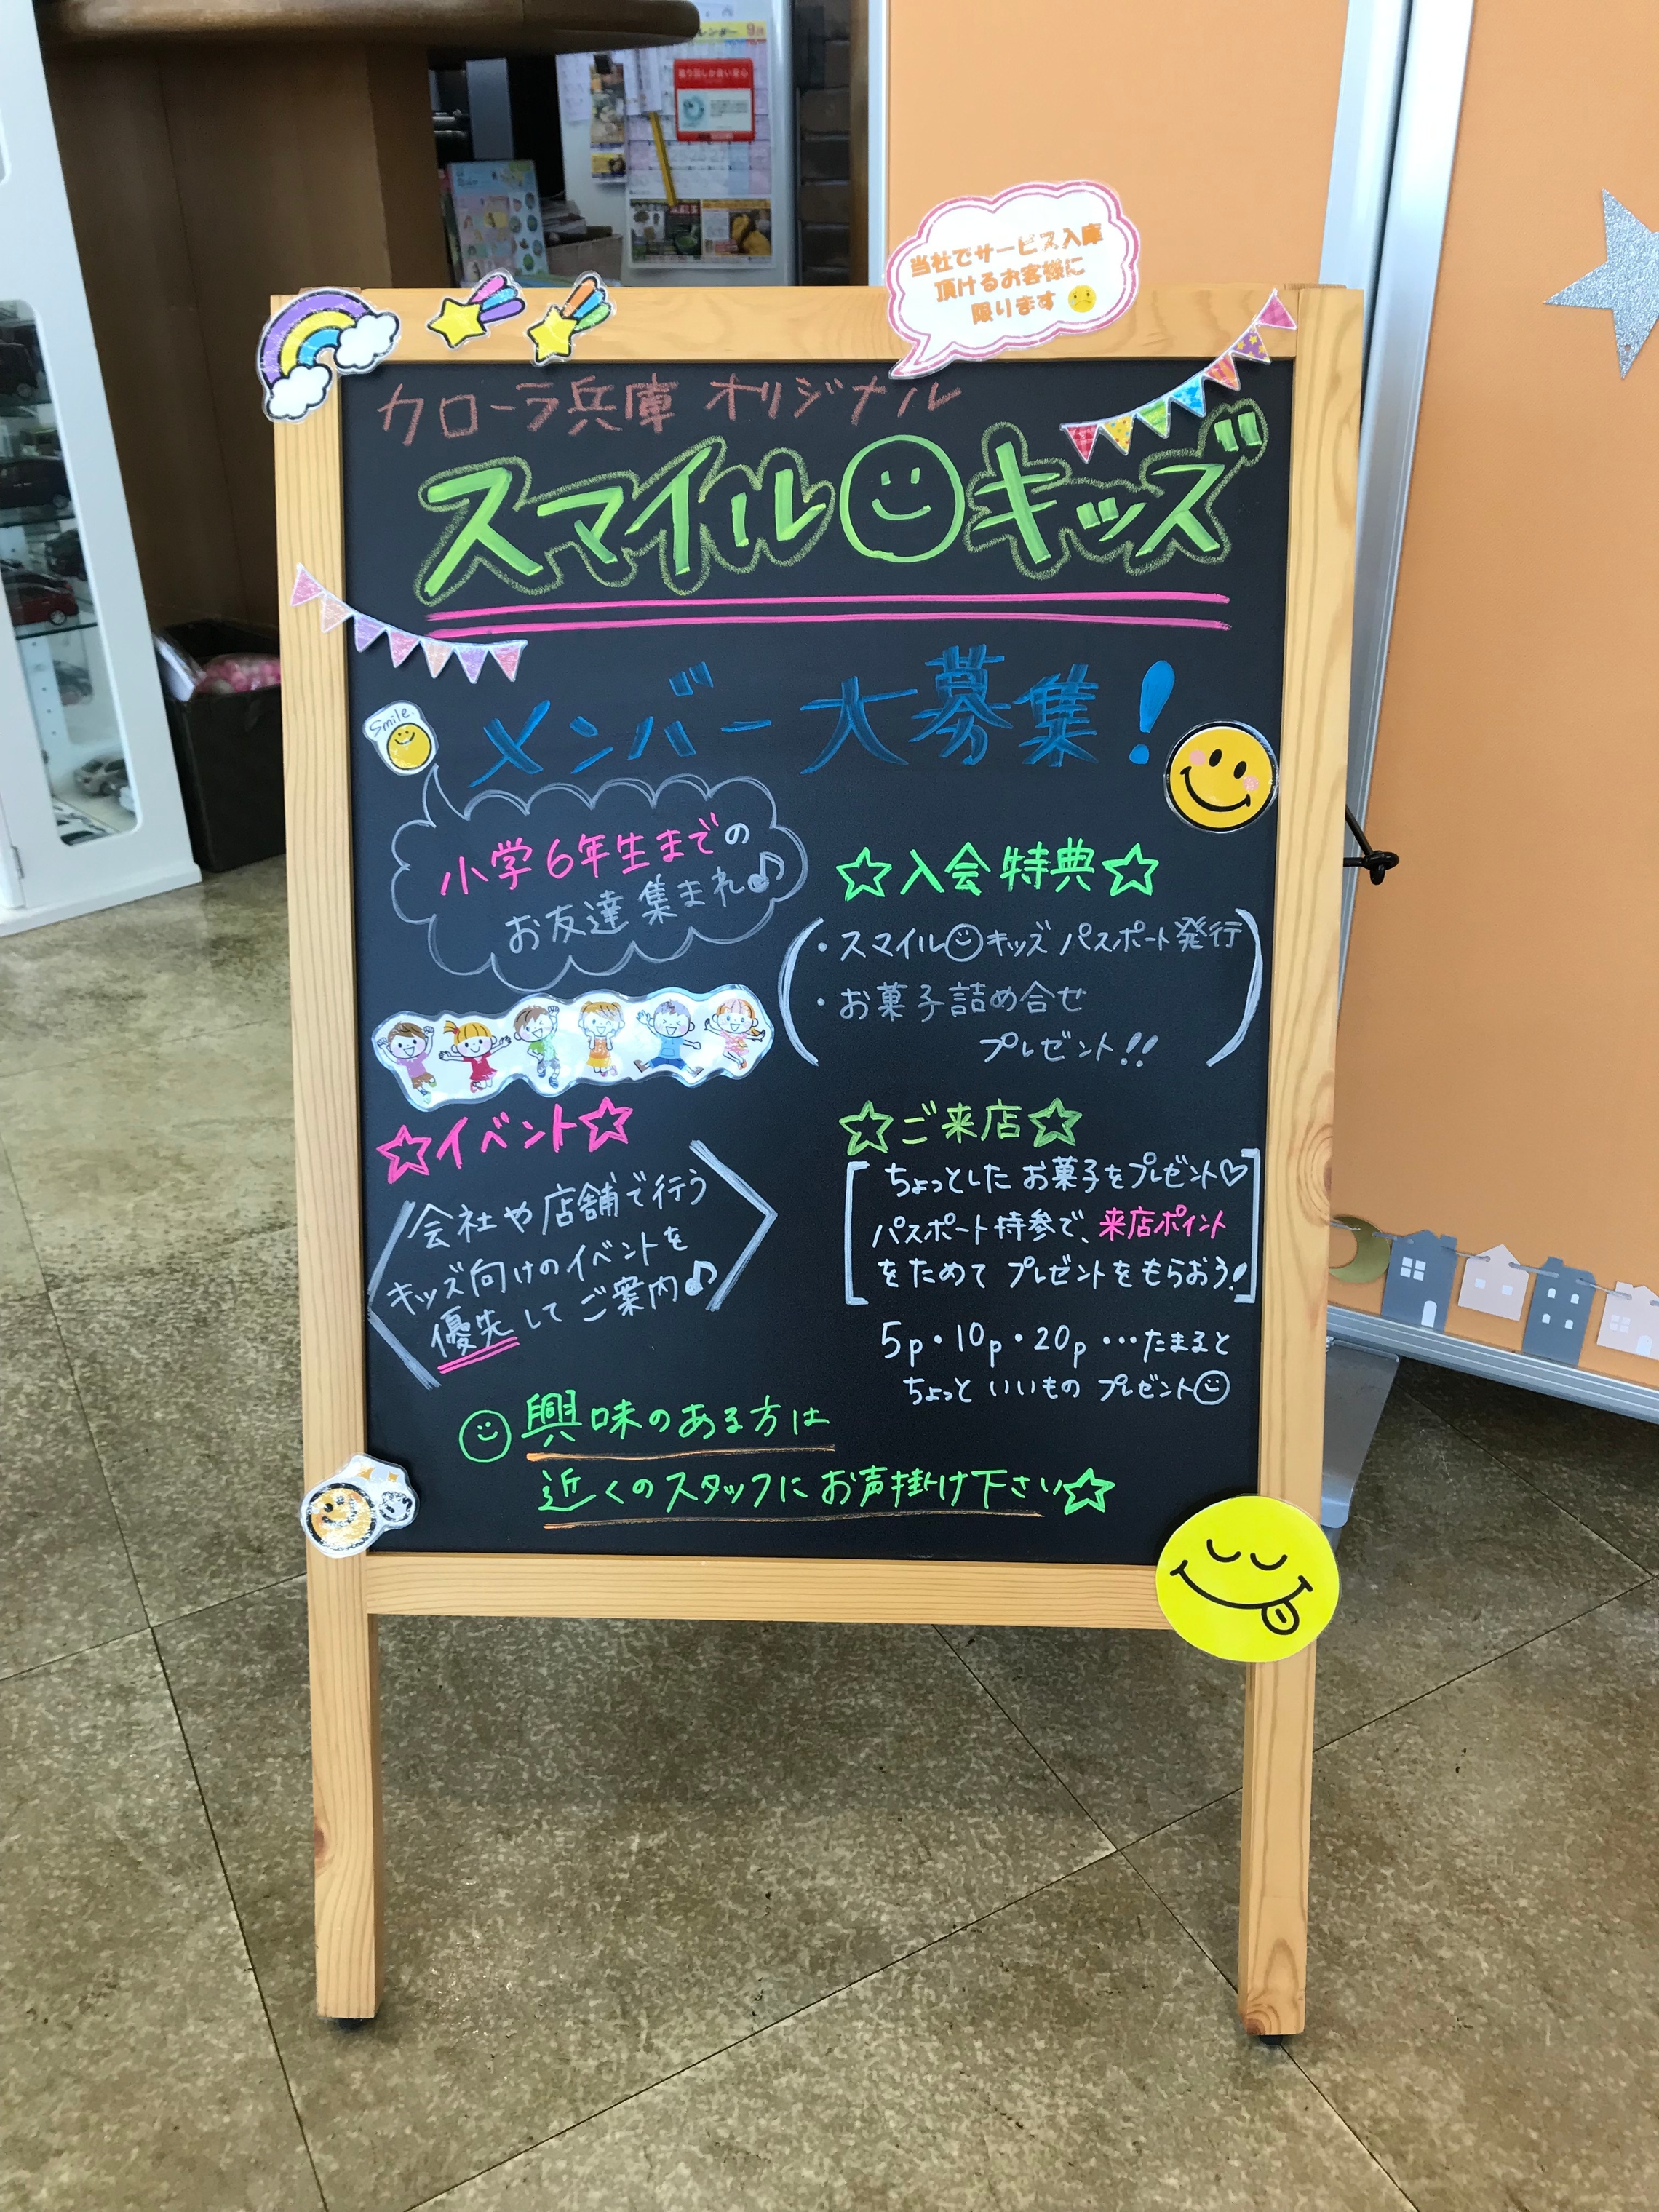 当社でサービス入庫
頂けるお客様に
限ります
カローラ兵庫 オリジナル
スマイル キッズ
メンバー大募集!
Smile.
小学6年生までの
お友達集まれ♪
☆イベント☆
会社や店舗で行う
キッズ向けのイベントを
優先してご案内♪
☆入会特典☆
・スマイル キッズ パスポート発行
・お菓子詰め合せ
プレゼント!!
☆ご来店☆
ちょっとした お菓子をプレゼント♡
パスポート持参で、来店ポイント
をためて プレゼントをもらおう!
5p・10p・20p …たまると
ちょっと いいもの プレゼント
興味のある方は
近くのスタッフにお声掛け下さい☆